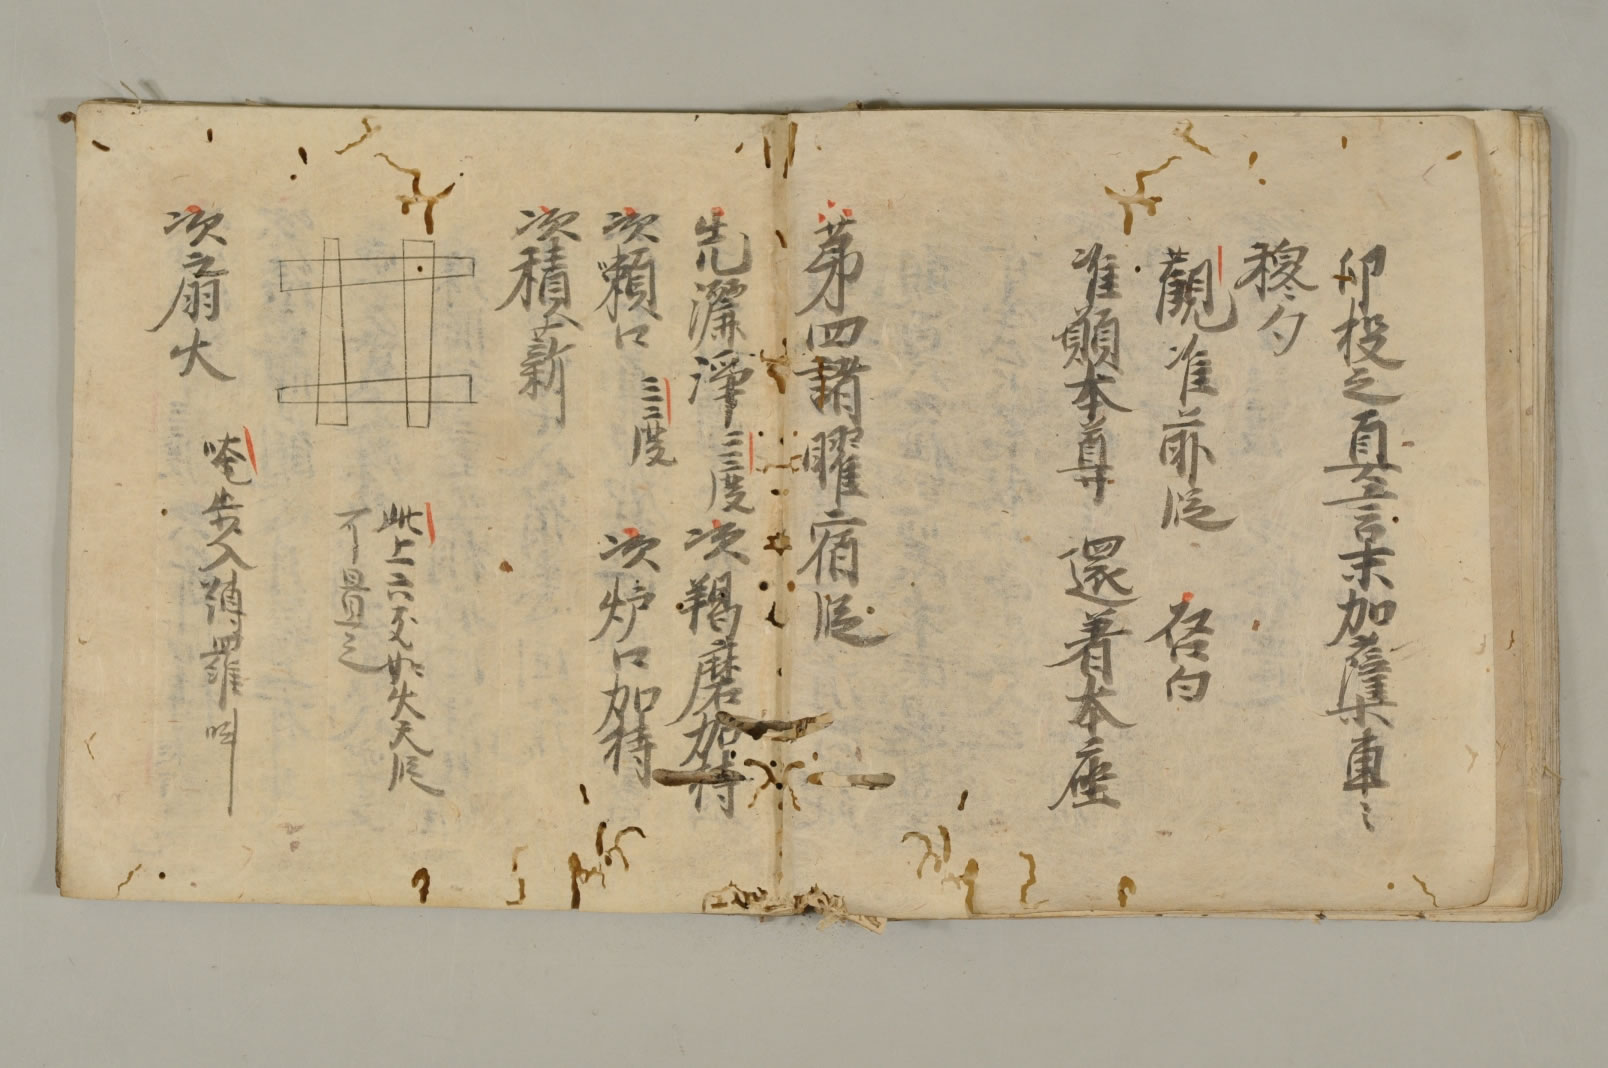 印投之真言末加薩𤙖車〻
穆勺
觀准前段　召白
准願本尊　還著本座
第四諸曜宿段
先灑淨三度　次羯磨加持
次嗽口三度　次炉口加持
次積薪
此上六支如火天段
可畳之
次扇火
唵步入嚩羅吽